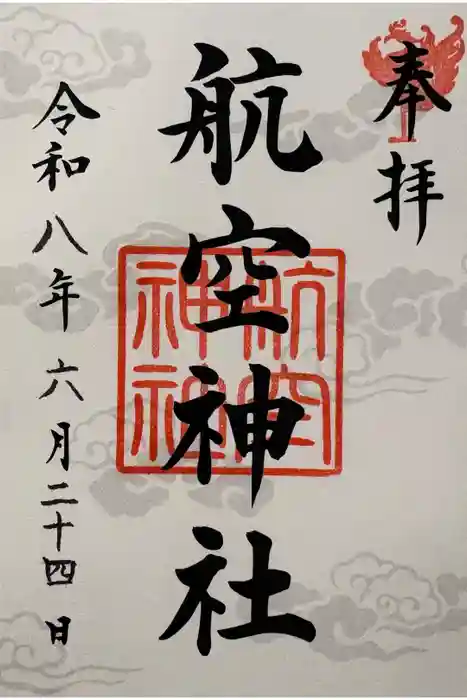 奉拝
航空神社
航空神社
令和八年六月二十四日